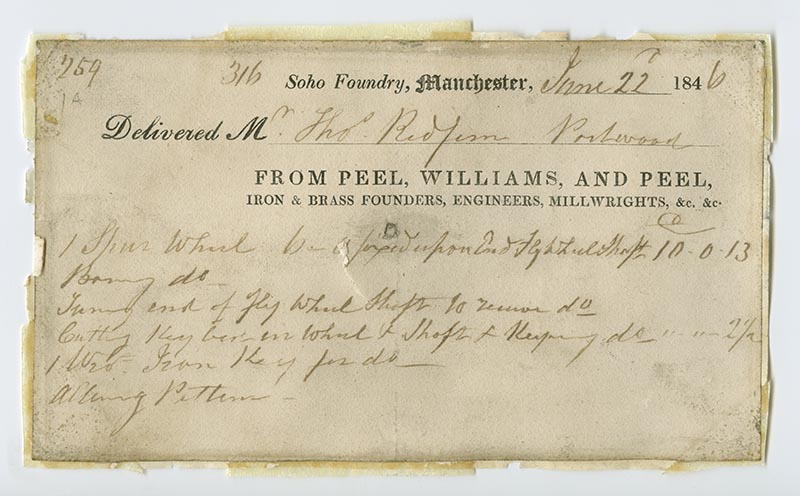 259 316 Soho Foundry, Manchester, June 22 1846
1A
Delivered Mr. Thos. Redfern Portwood
FROM PEEL, WILLIAMS, AND PEEL,
IRON & BRASS FOUNDERS, ENGINEERS, MILLWRIGHTS, &c. &c.
1 Spur Wheel fixed upon End Fly Wheel Shaft 10-0-13
Boring do
Turng end of Fly Wheel Shaft to receive do
Cuttg Key bed in Wheel & Shaft & Keying do " " 2½
1 Wrot. Iron Key for do
Alterng Pattern